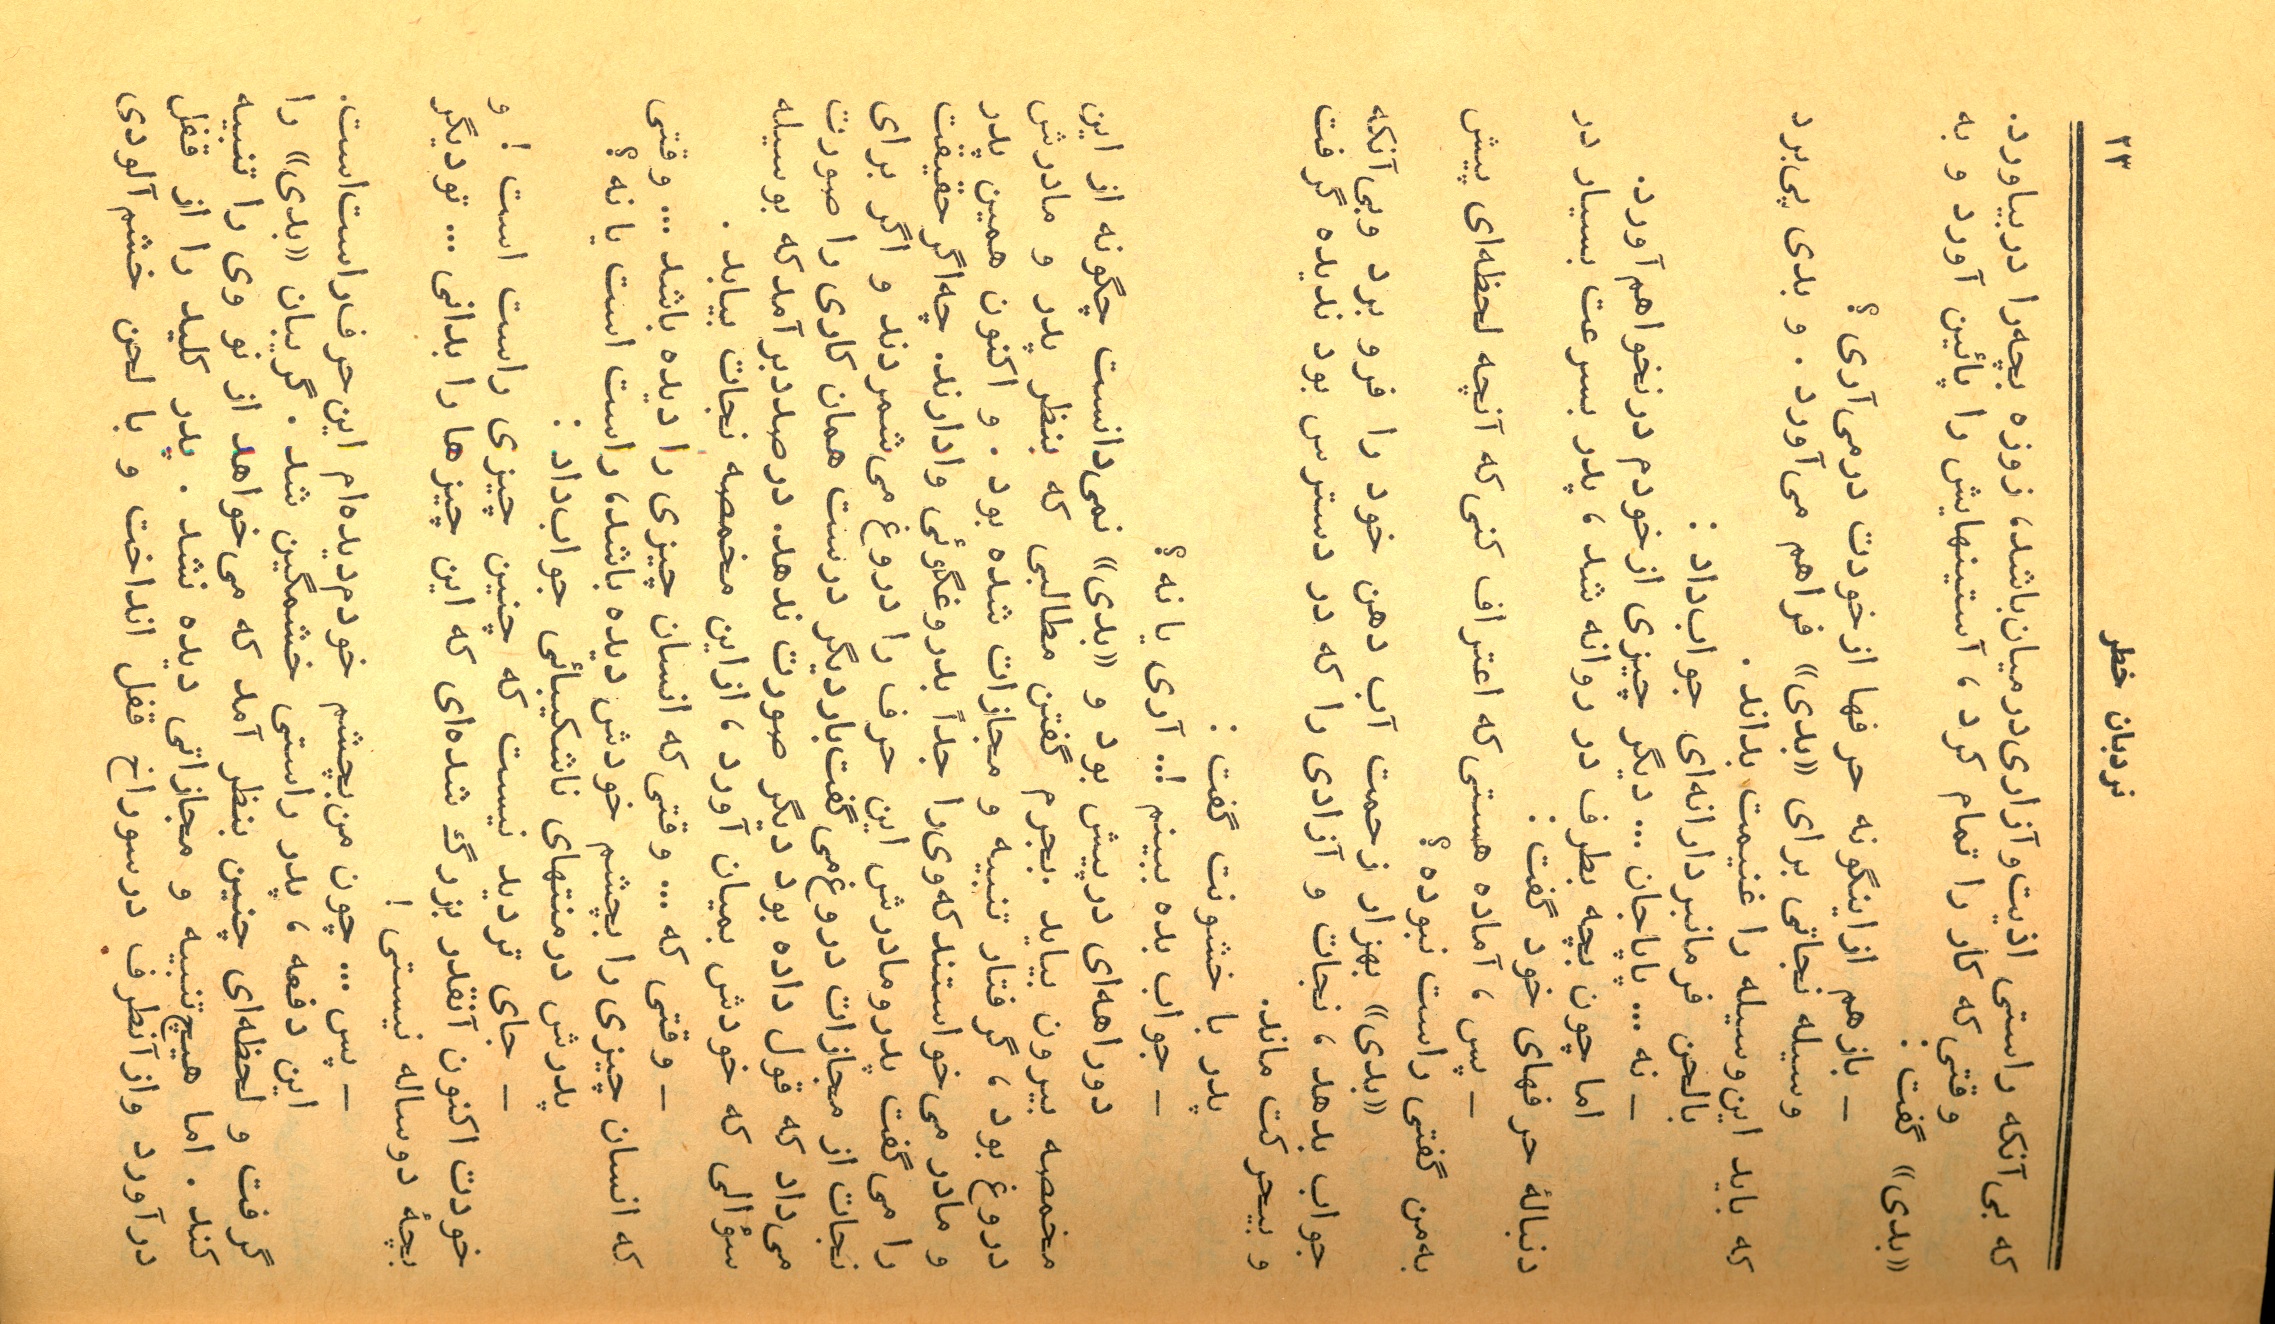 ۲۳
نردبان خطر
که بی‌آنکه راستی اذیت‌و‌آزاری‌درمیان‌باشد، زوزه بچه‌را دربیاورد.
وقتی که کار را تمام کرد، آستینهایش را پائین آورد و به
«بدی» گفت :
– بازهم ازاینگونه حرفها ازخودت درمی‌آری؟
وسیله نجاتی برای «بدی» فراهم می‌آورد . و بدی پی‌برد
که باید این‌وسیله را غنیمت بداند .
بالحن فرمانبردارانه‌ای جواب‌داد :
– نه ... پاپاجان ... دیگر چیزی ازخودم درنخواهم‌آورد.
اما چون بچه بطرف در روانه شد، پدر بسرعت بسیار در
دنبالهٔ حرفهای خود گفت :
– پس، آماده هستی‌که اعتراف کنی‌که آنچه لحظه‌ای پیش
به‌من گفتی راست نبوده؟
«بدی» بهزار زحمت آب دهن خود را فرو برد وبی‌آنکه
جواب بدهد، نجات و آزادی را که در دسترس بود ندیده گرفت
و بیحرکت ماند.
پدر با خشونت گفت :
– جواب بده ببینم !... آری یا نه؟
دوراهه‌ای درپیش بود و «بدی» نمی‌دانست چگونه از این
مخمصه بیرون بیاید .بجرم گفتن مطالبی که بنظر پدر و مادرش
دروغ بود، گرفتار تنبیه و مجازات شده بود . و اکنون همین پدر
و مادر می‌خواستندکه‌وی‌را جداً بدروغگوئی وادارند. چه‌اگرحقیقت
را می‌گفت پدرومادرش این حرف را دروغ می‌شمردند و اگر برای
نجات از مجازات دروغ‌می‌گفت‌باردیگر درست همان کاری را صورت
می‌داد که قول داده بود دیگر صورت ندهد. درصددبرآمدکه بوسیله
سؤالی که خودش بمیان آورد، ازاین مخمصه نجات بیابد .
– وقتی که ... وقتی‌که انسان چیزی را دیده باشد ... وقتی
که انسان چیزی‌را بچشم خودش دیده باشد، راست است یا نه؟
پدرش درمنتهای ناشکیبائی جواب‌داد :
– جای تردید نیست که چنین چیزی راست است ! و
خودت اکنون آنقدر بزرگ شده‌ای که این چیزها را بدانی ... تودیگر
بچهٔ دوساله نیستی !
– پس ... چون من‌بچشم خودم‌دیده‌ام این‌حرف‌راست‌است.
این دفعه، پدر راستی خشمگین شد . گریبان «بدی» را
گرفت و لحظه‌ای چنین بنظر آمد که می‌خواهد از نو وی را تنبیه
کند . اما هیچ‌تنبیه و مجازاتی دیده نشد . پدر کلید را از قفل
درآورد وازآنطرف درسوراخ قفل انداخت و با لحن خشم‌آلودی